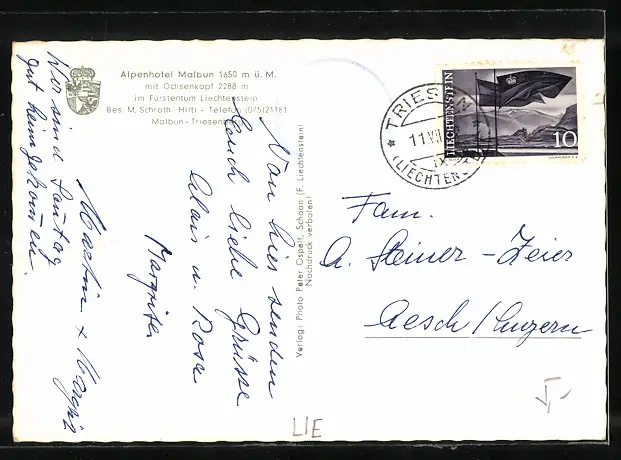 Alpenhotel Malbun 1650 m ü. M.
mit Ochsenkopf 2288 m
im Fürstentum Liechtenstein
Bes. M. Schroth-Hilti - Telefon (075)21181
Malbun - Triesenberg
Von hier senden
Euch liebe Grüsse
Alois u. Rosa
Margrith
Martin + Margrit
Wir sind Sonntag
gut heimgekommen.
Verlag: Photo Peter Ospelt, Schaan (F. Liechtenstein)
Nachdruck verboten!
LIECHTENSTEIN
10
TRIESEN
11.VII
(LIECHTENS
Fam.
A. Steiner-Zeier
Aesch/Luzern
LIE